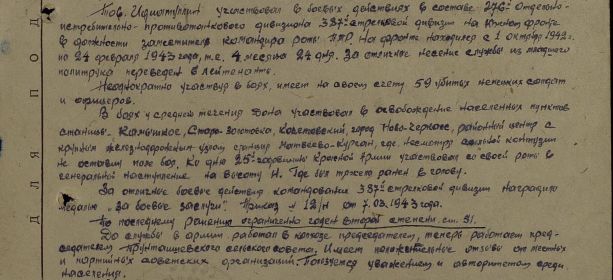 Тов. участвовал в боевых действиях в составе Отдельно-
истребительно-противотанкового дивизиона 387 стрелковой дивизии на Южном фронте
в должности заместителя командира роты ПТР. На фронте находился с 1 октября 1942г.
по 24 февраля 1943 года, т.е. 4 месяца 24 дня. За отличные несение службы из младшего
политрука переведен в лейтенанты.
Неоднократно участвуя в боях, имеет на своем счету 59 убитых немецких солдат
и офицеров.
В боях у среднем течения Дона участвовал в освобождение населенных пунктов
станицы- город Ново-Черкас, районный центр с
крупным железнодорожным узлом станция Матвеево-Курган, где несмотря сильной контузии
не оставил поле боя. Ко дню 25-годовщины Красной Армии участвовал со своей роты в
генеральной наступление на высоту Н. Где был тяжело ранен в голову.
За отличные боевые действия командование 387 стрелковой дивизии наградило
медалью „За боевые заслуги". Приказ № 12/н от 7.03.1943 года.
По последнему решению ограниченно годен второй степени ст. 31.
До службы в армии работал в колхозе председателем, теперь работает пред-
седателем сельского совета. Имеет положительные отзывы от местных
и партийных советских организаций. Пользуется уважением и авторитетом среди
населения.
Д Л Я П О Д